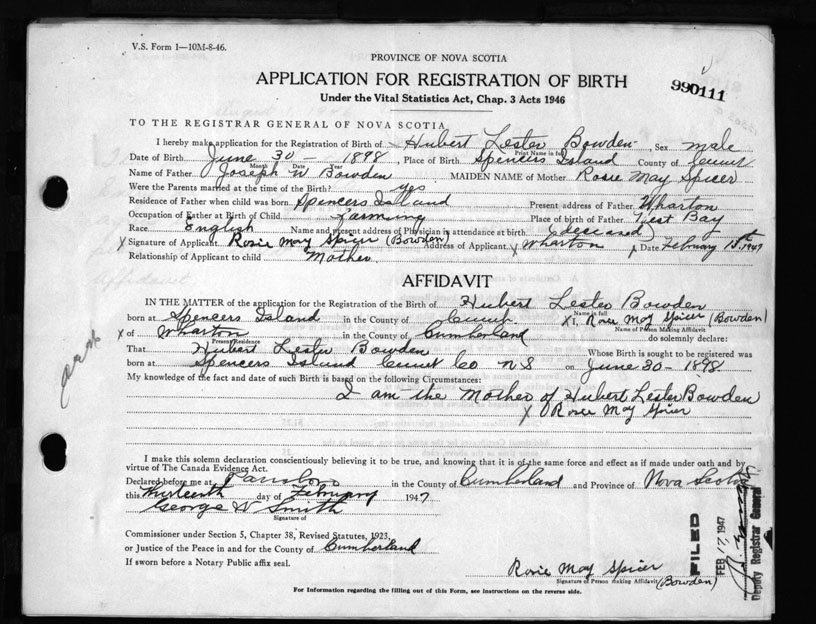 V.S. Form 1—10M-8-46.
PROVINCE OF NOVA SCOTIA
APPLICATION FOR REGISTRATION OF BIRTH
990111
Under the Vital Statistics Act, Chap. 3 Acts 1946
TO THE REGISTRAR GENERAL OF NOVA SCOTIA
I hereby make application for the Registration of Birth of Hubert Lester Bowden Sex male
Print Name in full
Date of Birth June 30 - 1898, Place of Birth Spencers Island County of Cumt
Month Date Year
Name of Father Joseph W Bowden MAIDEN NAME of Mother Rosie May Spicer
Were the Parents married at the time of the Birth? yes
Residence of Father when child was born Spencers Island Present address of Father Wharton
Occupation of Father at Birth of Child farming Place of birth of Father West Bay
Race English Name and present address of Physician in attendance at birth (deceased)
x Signature of Applicant Rosie May Spicer (Bowden) Address of Applicant x Wharton x Date February 13th 1947
Relationship of Applicant to child Mother
AFFIDAVIT
IN THE MATTER of the application for the Registration of the Birth of Hubert Lester Bowden
Name in full
born at Spencers Island in the County of Cumt. x I, Rosie May Spicer (Bowden)
Name of Person Making Affidavit
x of Wharton in the County of Cumberland do solemnly declare:
Present Residence
That Hubert Lester Bowden Whose Birth is sought to be registered was
born at Spencers Island Cumt Co N S on June 30 - 1898
My knowledge of the fact and date of such Birth is based on the following Circumstances:
I am the Mother of Hubert Lester Bowden
x Rosie May Spicer
I make this solemn declaration conscientiously believing it to be true, and knowing that it is of the same force and effect as if made under oath and by
virtue of The Canada Evidence Act.
Declared before me at Parrsboro in the County of Cumberland and Province of Nova Scotia
this thirteenth day of February 1947
George W Smith
Signature of
Commissioner under Section 5, Chapter 38, Revised Statutes, 1923,
or Justice of the Peace in and for the County of Cumberland
If sworn before a Notary Public affix seal.
Rosie May Spicer
Signature of Person making Affidavit (Bowden)
For Information regarding the filling out of this Form, see instructions on the reverse side.
FILED
FEB 17, 1947
Deputy Registrar General